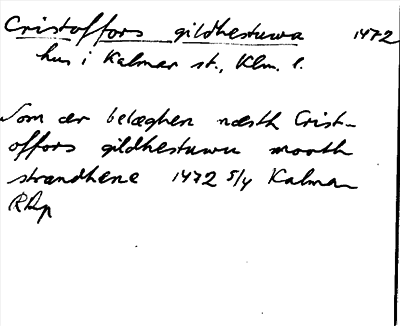 Cristoffors gildhestuwa 1472
hus i Kalmar st., Klm. l.
Som ær belæghen næsth Crist-
offors gildhestuwu mooth
strandhene 1472 5/4 Kalmar
RAp